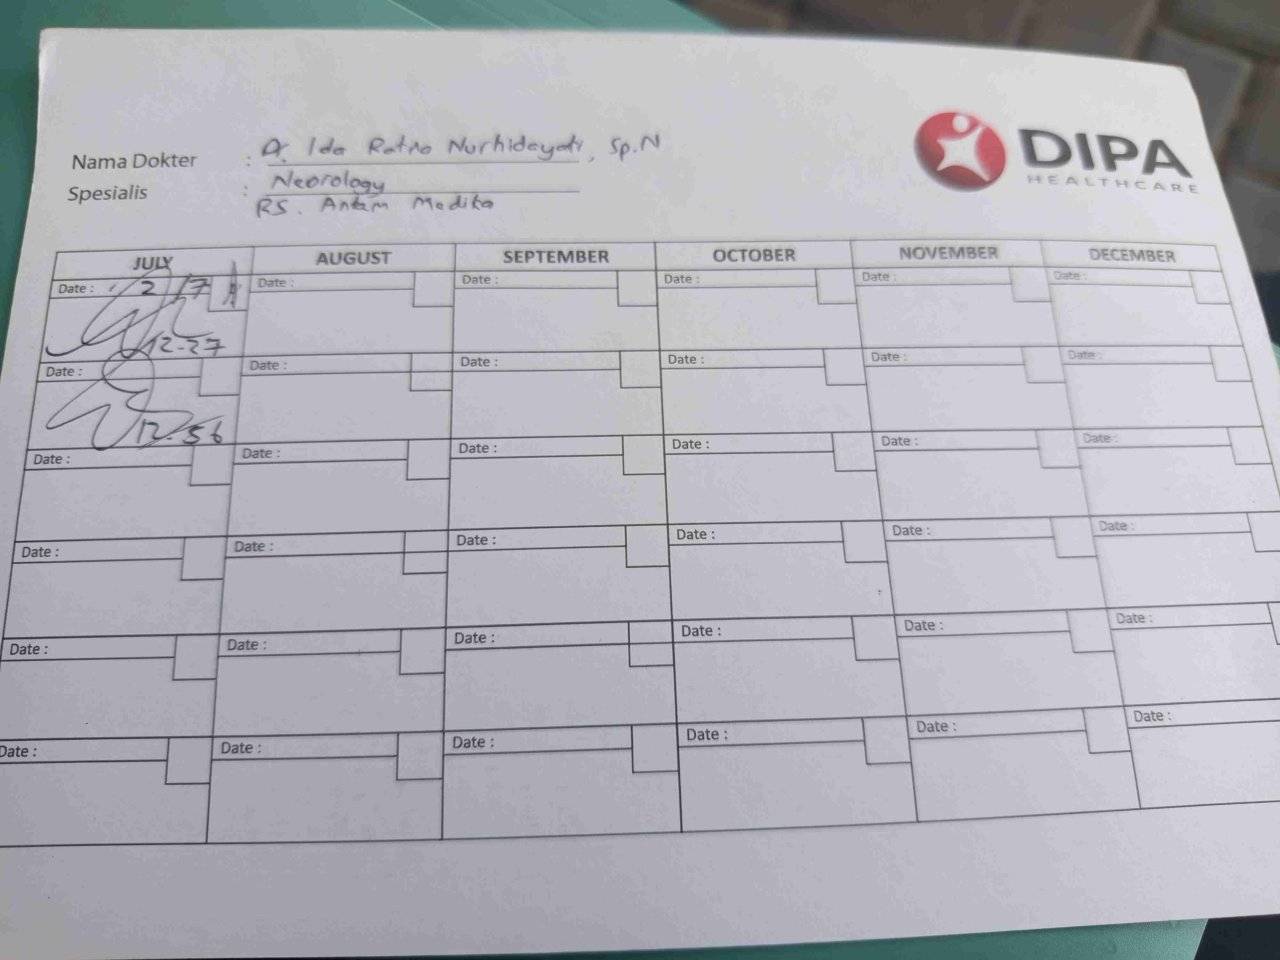 DIPA
HEALTHCARE
Nama Dokter : Dr. Ida Ratna Nurhidayati, Sp.N
Spesialis : Neorology
RS. Antam Medika
JULY AUGUST SEPTEMBER OCTOBER NOVEMBER DECEMBER
Date : 2/7 Date : Date : Date : Date : Date :
12-27
Date : Date : Date : Date : Date : Date :
12-56
Date : Date : Date : Date : Date : Date :
Date : Date : Date : Date : Date : Date :
Date : Date : Date : Date : Date : Date :
Date : Date : Date : Date : Date : Date :